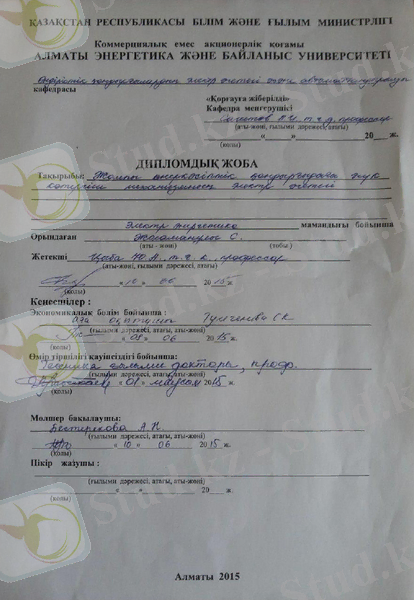 ҚАЗАҚСТАН РЕСПУБЛИКАСЫ БІЛІМ ЖӘНЕ ҒЫЛЫМ МИНИСТРЛІГІ
Коммерциялық емес акционерлік қоғамы
АЛМАТЫ ЭНЕРГЕТИКА ЖӘНЕ БАЙЛАНЫС УНИВЕРСИТЕТІ
кафедрасы
«Қорғауға жіберілді»
Кафедра меңгерушісі
т.ғ.д., профессор
(аты-жөні, ғылыми дәрежесі, атағы)
« » 20 ж.
ДИПЛОМДЫҚ ЖОБА
Тақырыбы: Жалпы өнеркәсіптік қондырғыдағы жүк
көтергіш механизмінің электр жетегі
Электр энергетика мамандығы бойынша
Орындаған С.
(аты - жөні) (тобы)
Жетекші Цыба Ю.А., т.ғ.к., профессор
(аты-жөні, ғылыми дәрежесі, атағы)
« 10 » 06 2015 ж.
(қолы)
Кеңесшілер :
Экономикалық бөлім бойынша :
аға оқытушы С.К.
(ғылыми дәрежесі, атағы, аты-жөні)
« 09 » 06 2015 ж.
(қолы)
Өмір тіршілігі қауіпсіздігі бойынша:
Техника ғылыми докторы, проф.
(ғылыми дәрежесі, атағы, аты-жөні)
« 01 » маусым 2015 ж.
(қолы)
Мөлшер бақылаушы:
Бестерекова А.Н.
(ғылыми дәрежесі, атағы, аты-жөні)
« 10 » 06 2015 ж.
(қолы)
Пікір жазушы :
(ғылыми дәрежесі, атағы, аты-жөні)
« » 20 ж.
(қолы)
Алматы 2015
Stud.kz